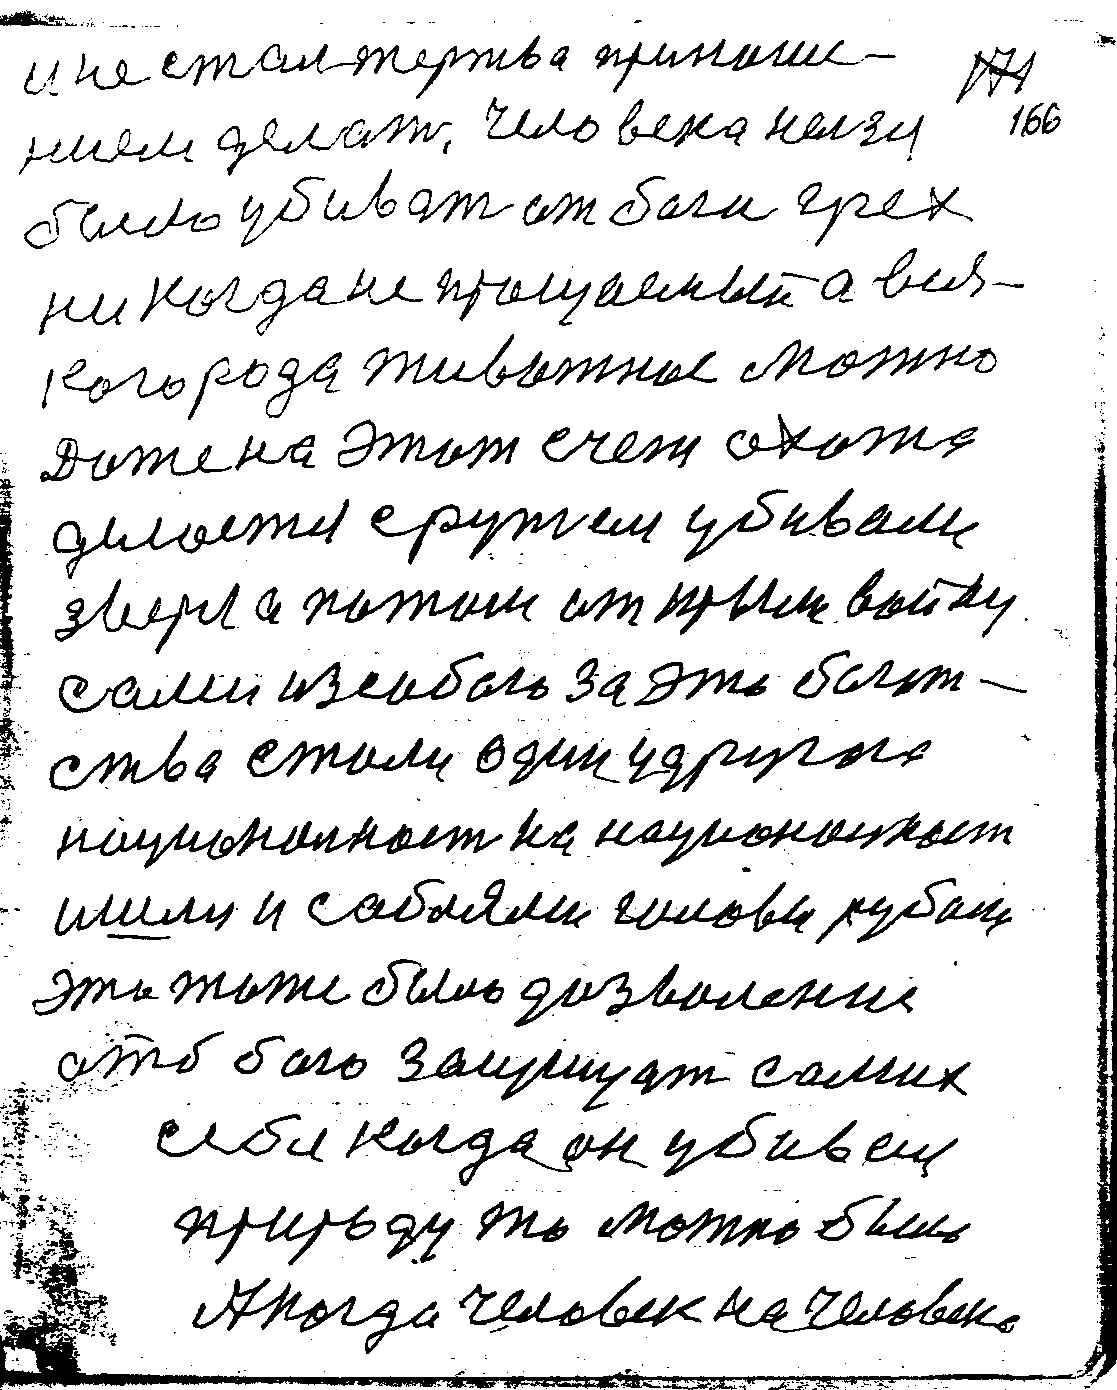 и не стал жертва приноше-
171
нием делат, человека нелзя
166
было убиват от бога грех
никогда не прощаемый а вся-
кого рода животное можно
Доже на этот счет охота
делоетя с ружем убивали
зверя а потом открыли войну
сами из собого за это богот-
ства стали один удругога
национолност на национолност
шили и саблями головы рубали
это тоже было дозволение
отб бога защищат самих
себя когда он убивеш
природу то можно было
А когда человек на человека